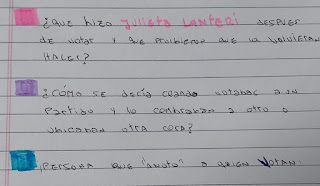 ¿QUE HIZO JULIETA LANTERI DESPUES
DE VOTAR Y QUE PROIBIERON QUE LA VOLVIERAN
HACER?
¿CÓMO SE DECÍA CUANDO VOTABAS A UN
PARTIDO Y LO CAMBIABAN A OTRO O
UBICABAN OTRA COSA?
PERSONA QUE "ANOTO" A QUIEN VOTAN: